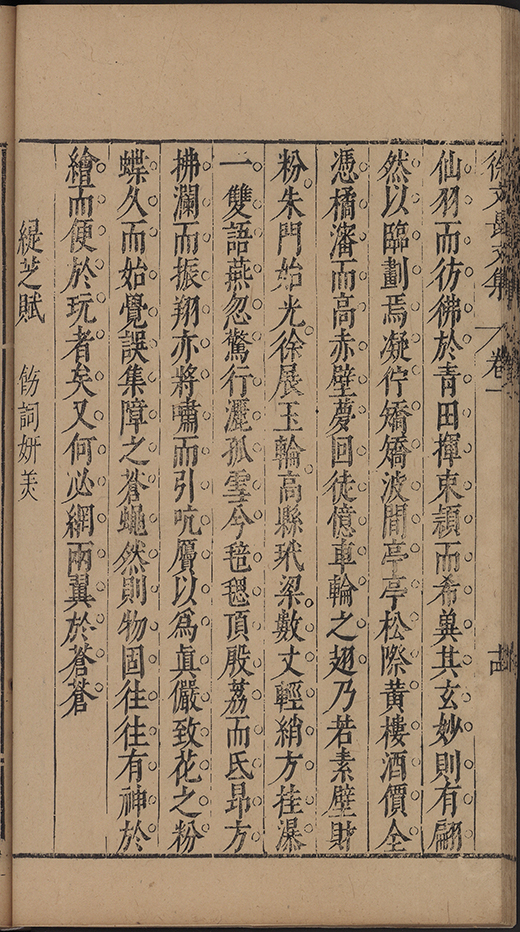 徐文長文集 卷一
仙羽而彷彿於青田揮束穎而希冀其玄妙則有翩
然以臨劃焉凝佇矯矯波間亭亭松際黃樓酒價全
憑橘瀋而高赤壁夢回徒憶車輪之翅乃若素壁財
粉朱門始光徐展玉輪高縣玳梁數丈輕綃方挂瀑
一雙語燕忽驚行灑孤雪今毰毸頂殷荔而氐昂方
拂瀾而振翔亦將嘯而引吭屬以爲眞儼致花之粉
蝶久而始覺誤集障之蒼蠅然則物固往往有神於
繪而便於玩者矣又何必網兩翼於蒼蒼
緹芝賦 飭詞妍美